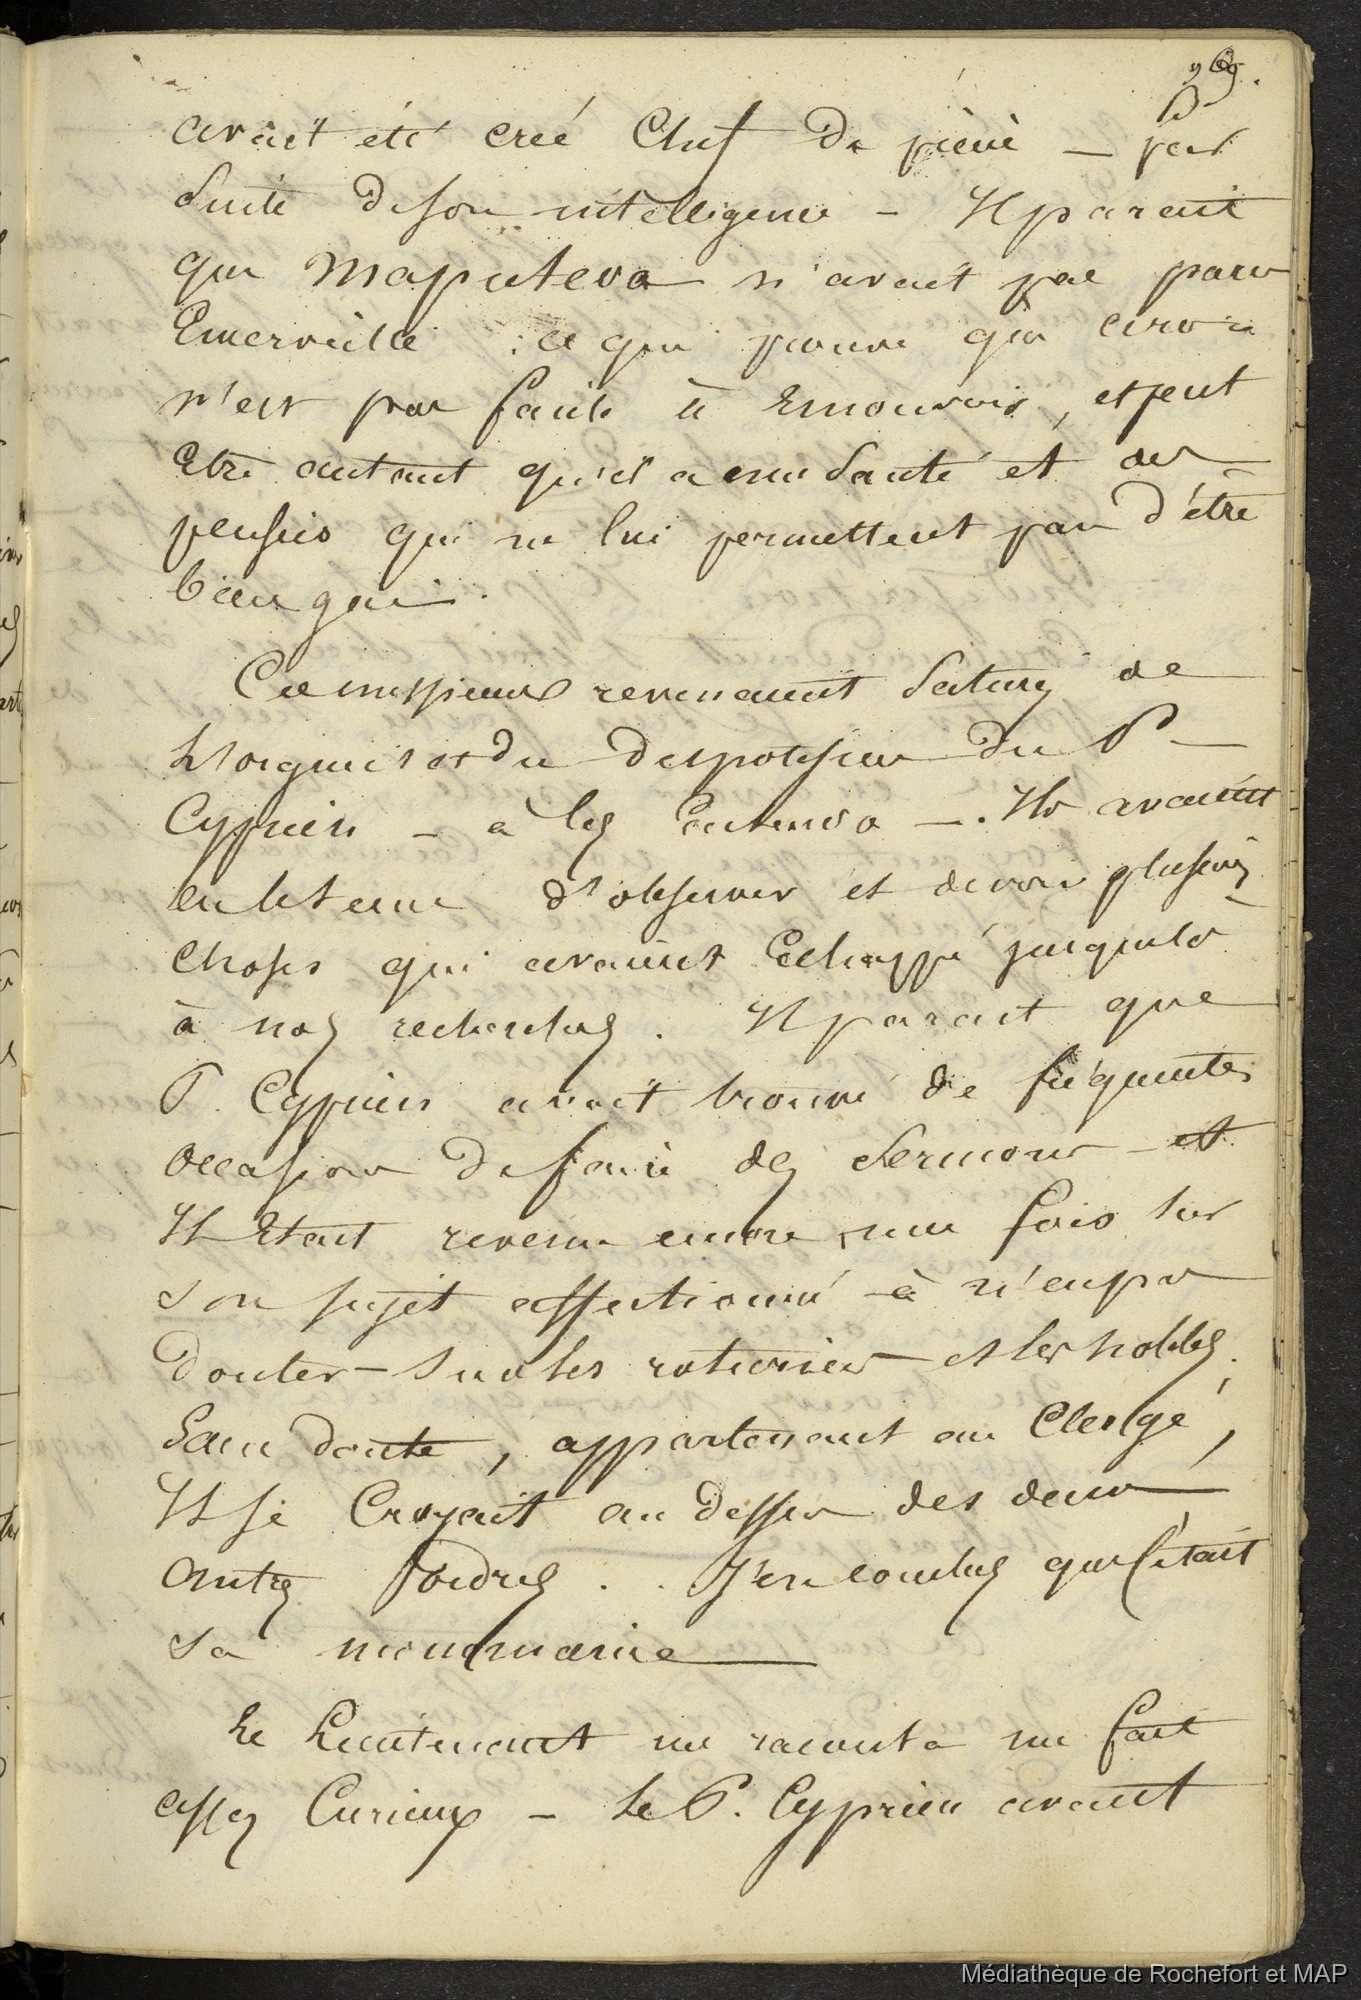 969.
avait été créé Chef de pièce — par
Suite de son intelligence — Il parait
que Maputeva n'avait pas paru
Emerveillé : ce qui prouve qu'il
n'est pas facile à Emouvoir, et peut
Etre autant qu'il a une Santé et des
pensées qui ne lui permettent pas d'être
bien gai.
Ces messieurs revenaient Saturés de
L'orgueil et du despotisme du P.
Cyprien — à les Entendre —. Ils avaient
eu le tems d'observer et de voir plusieurs
choses qui avaient Echappé jusques là
à nos recherches. Il parait que
P. Cyprien avait trouvé de fréquentes
occasions de faire des Sermons — et
Il Etait revenu encore une fois sur
son sujet affectionné — à n'en pas
douter — Sur les roturiers et les nobles.
Sans doute, appartenant au Clergé,
Il se Croyait au dessus des deux
autres Ordres .. J'en conclus que c'était
sa monomanie —
Le Lieutenant me raconta un fait
assez Curieux — Le P. Cyprien avait
Médiathèque de Rochefort et MAP